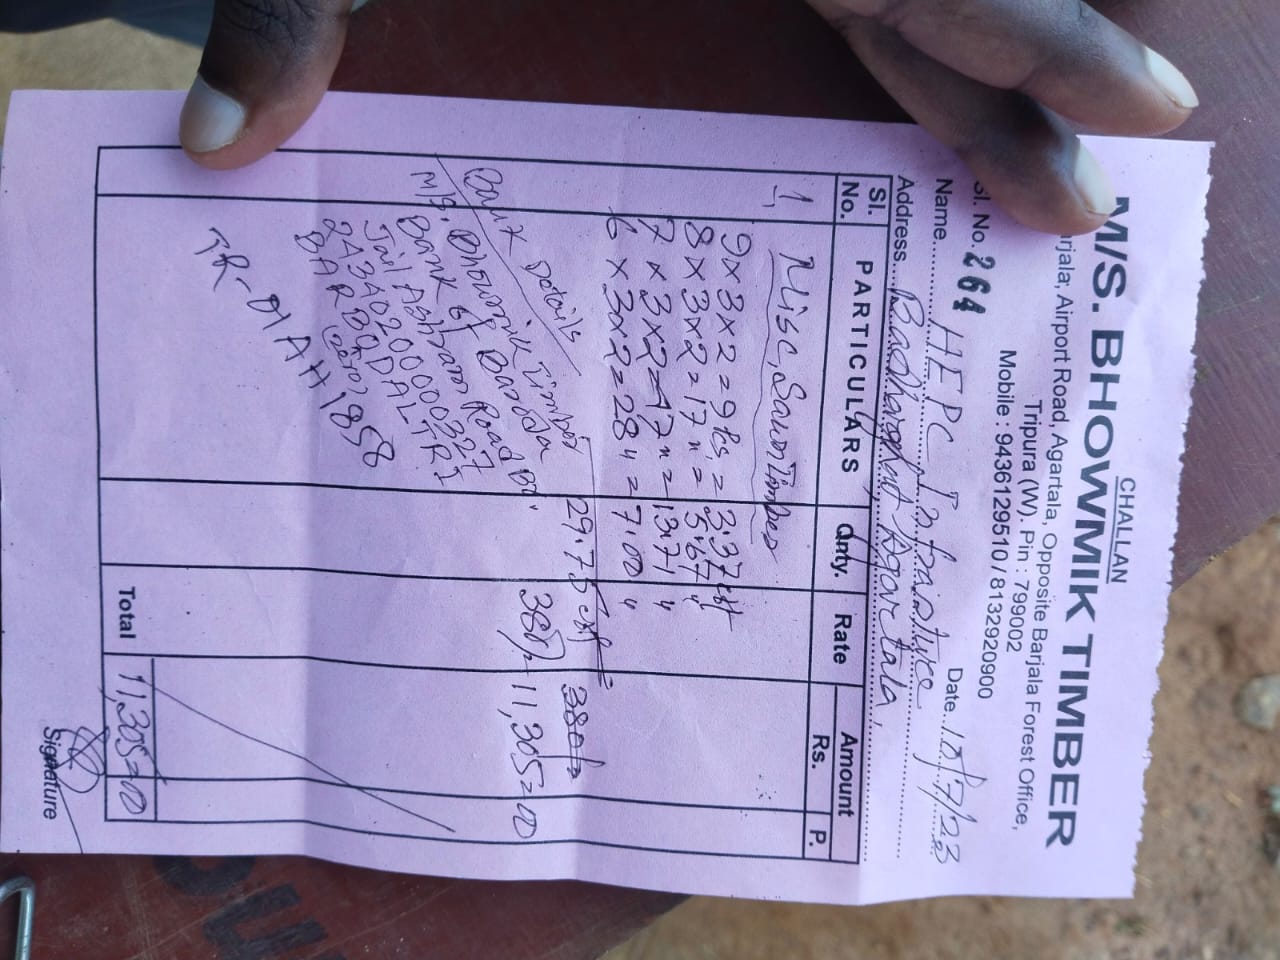 CHALLAN
M/S. BHOWMIK TIMBER
arjala, Airport Road, Agartala, Opposite Barjala Forest Office,
Tripura (W). Pin : 799002
Mobile : 9436129510 / 8132920900
Sl. No. 264
Date...10/7/23
Name... HEPC Infrastructure
Address... Badharghat Agartala,
Sl. No. PARTICULARS Qnty. Rate Amount Rs. P.
1, Misc, Sawn Timber
9 x 3 x 2 = 9 Ps, = 3.37 cft
8 x 3 x 2 = 17 " = 5.67 "
7 x 3 x 2 = 47 " = 13.71 "
6 x 3 x 2 = 28 " = 7.00 "
29.75 cft 380/-
380/- 11,305=00
Bank Details
M/s. Bhowmik Timber
Bank of Baroda
Jail Ashram Road Br.
2A340200000227
BARB0DALTRI
(zero)
TR-01AH1858
Total 11,305=00
Signature